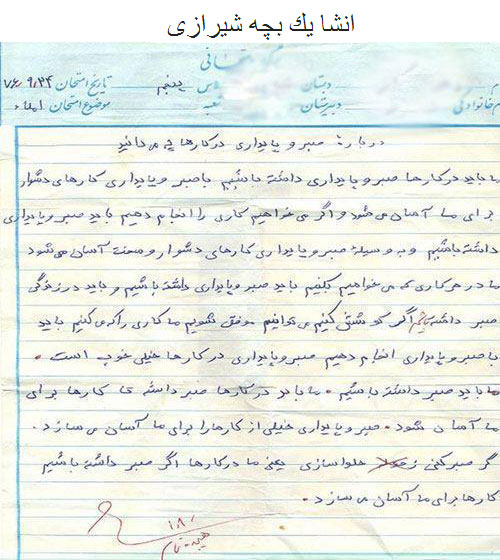 انشا يك بچه شيرازى
امتحانی
دبستان
پنجم
تاریخ امتحان ۷۶،۹،۲۴
خانوادگی
دبیرستان
شعبه
موضوع امتحان املاء
درباره صبر و پایداری در کارها چه می دانید
ما باید در کارها صبر و پایداری داشته باشیم با صبر و پایداری کارهای دشوار
برای ما آسان می شود و اگر می خواهیم کاری را انجام دهیم باید صبر و پایداری
داشته باشیم و به وسیله صبر و پایداری کارهای دشوار و سخت آسان می شود
ما در هر کاری که می خواهیم بکنیم باید صبر و پایداری داشته باشیم و باید در زندگی
صبر داشته باشیم اگر کوشش کنیم می توانیم موفق شویم ما کاری را که می کنیم باید
با صبر و پایداری انجام دهیم صبر و پایداری در کارها خیلی خوب است .
ما باید صبر داشته باشیم . ما باید در کارها صبر داشته تا کارها برای
ما آسان شود . صبر و پایداری خیلی از کارها را برای ما آسان می سازد .
گر صبر کنی ز حلوا سازی یعنی ما در کارها اگر صبر داشته باشیم
کارها برای ما آسان می سازد .
۱۸/